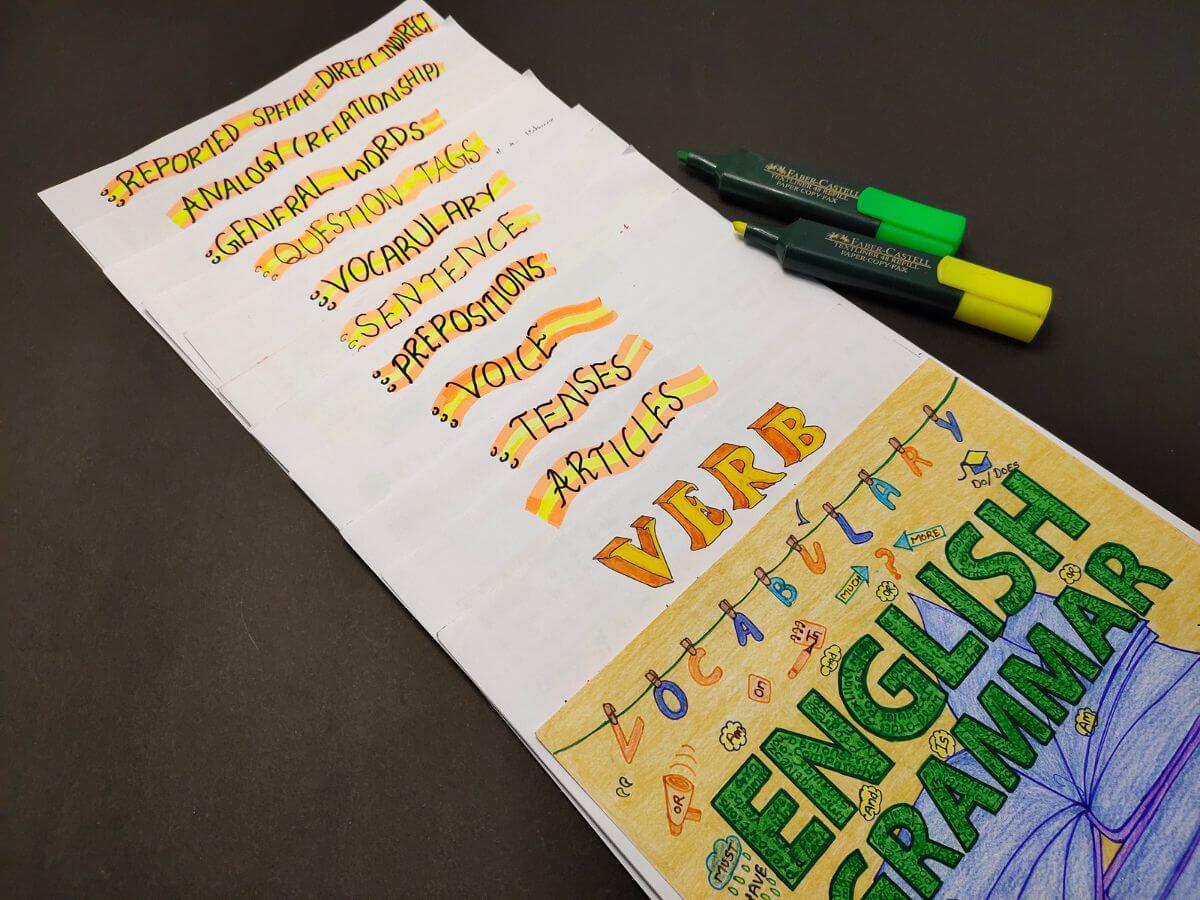 REPORTED SPEECH-DIRECT INDIRECT
ANALOGY (RELATIONSHIP)
GENERAL WORDS
QUESTION TAGS
VOCARULARY
SENTENCE
PREPOSITIONS
VOICE
TENSES
ARTICLES
VERB
FABER-CASTELL
TEXTLINER 48 REFILL
PAPER COPY FAX
FABER-CASTELL
TEXTLINER 48 REFILL
PAPER COPY FAX
VOCABULARY
DO/DOES
MORE
MUCH
?
OR
OR
In
And
On
Am
OR
ENGLISH
GRAMMAR
Is
Am
And
MUST
HAVE